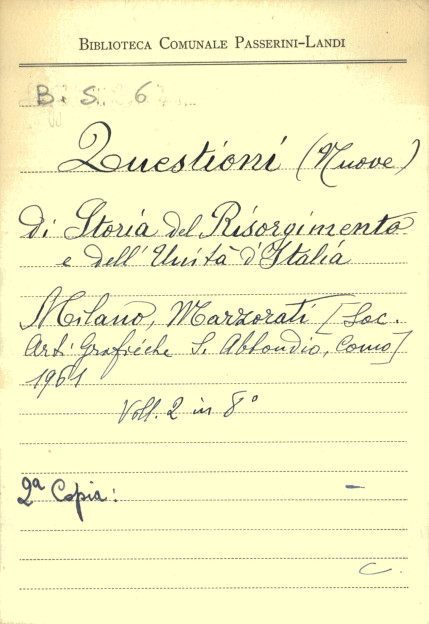 BIBLIOTECA COMUNALE PASSERINI-LANDI
B. S. 6
Questioni (Nuove)
di Storia del Risorgimento
e dell'Unità d'Italia
Milano, Marzorati [Soc.
Arti Grafiche S. Abbondio, Como]
1961
Voll. 2 in 8°
2ª Copia: –
C.